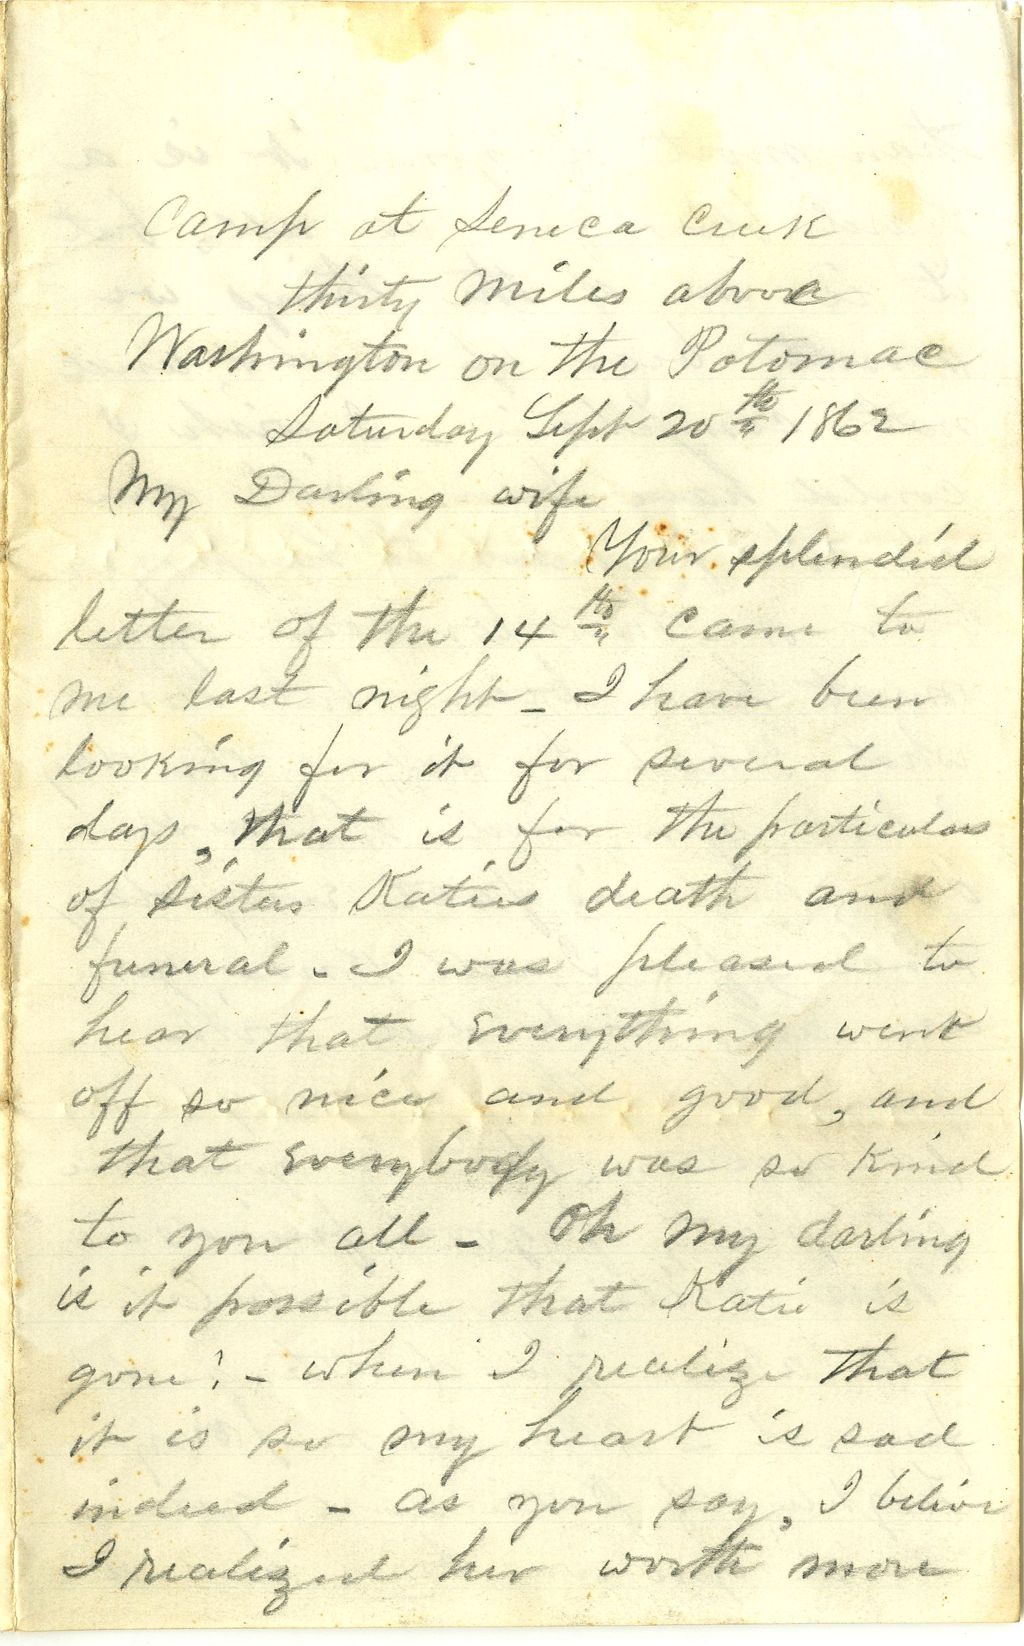 Camp at Seneca Creek
thirty miles above
Washington on the Potomac
Saturday Sept 20th 1862
My Darling wife
Your splendid
letter of the 14th came to
me last night - I have been
looking for it for several
days, that is for the particulars
of sister Katies death and
funeral - I was pleased to
hear that everything went
off so nice and good, and
that everybody was so kind
to you all - Oh my darling
is it possible that Katie is
gone! - when I realize that
it is so my heart is sad
indeed - as you say, I believe
I realized her worth more